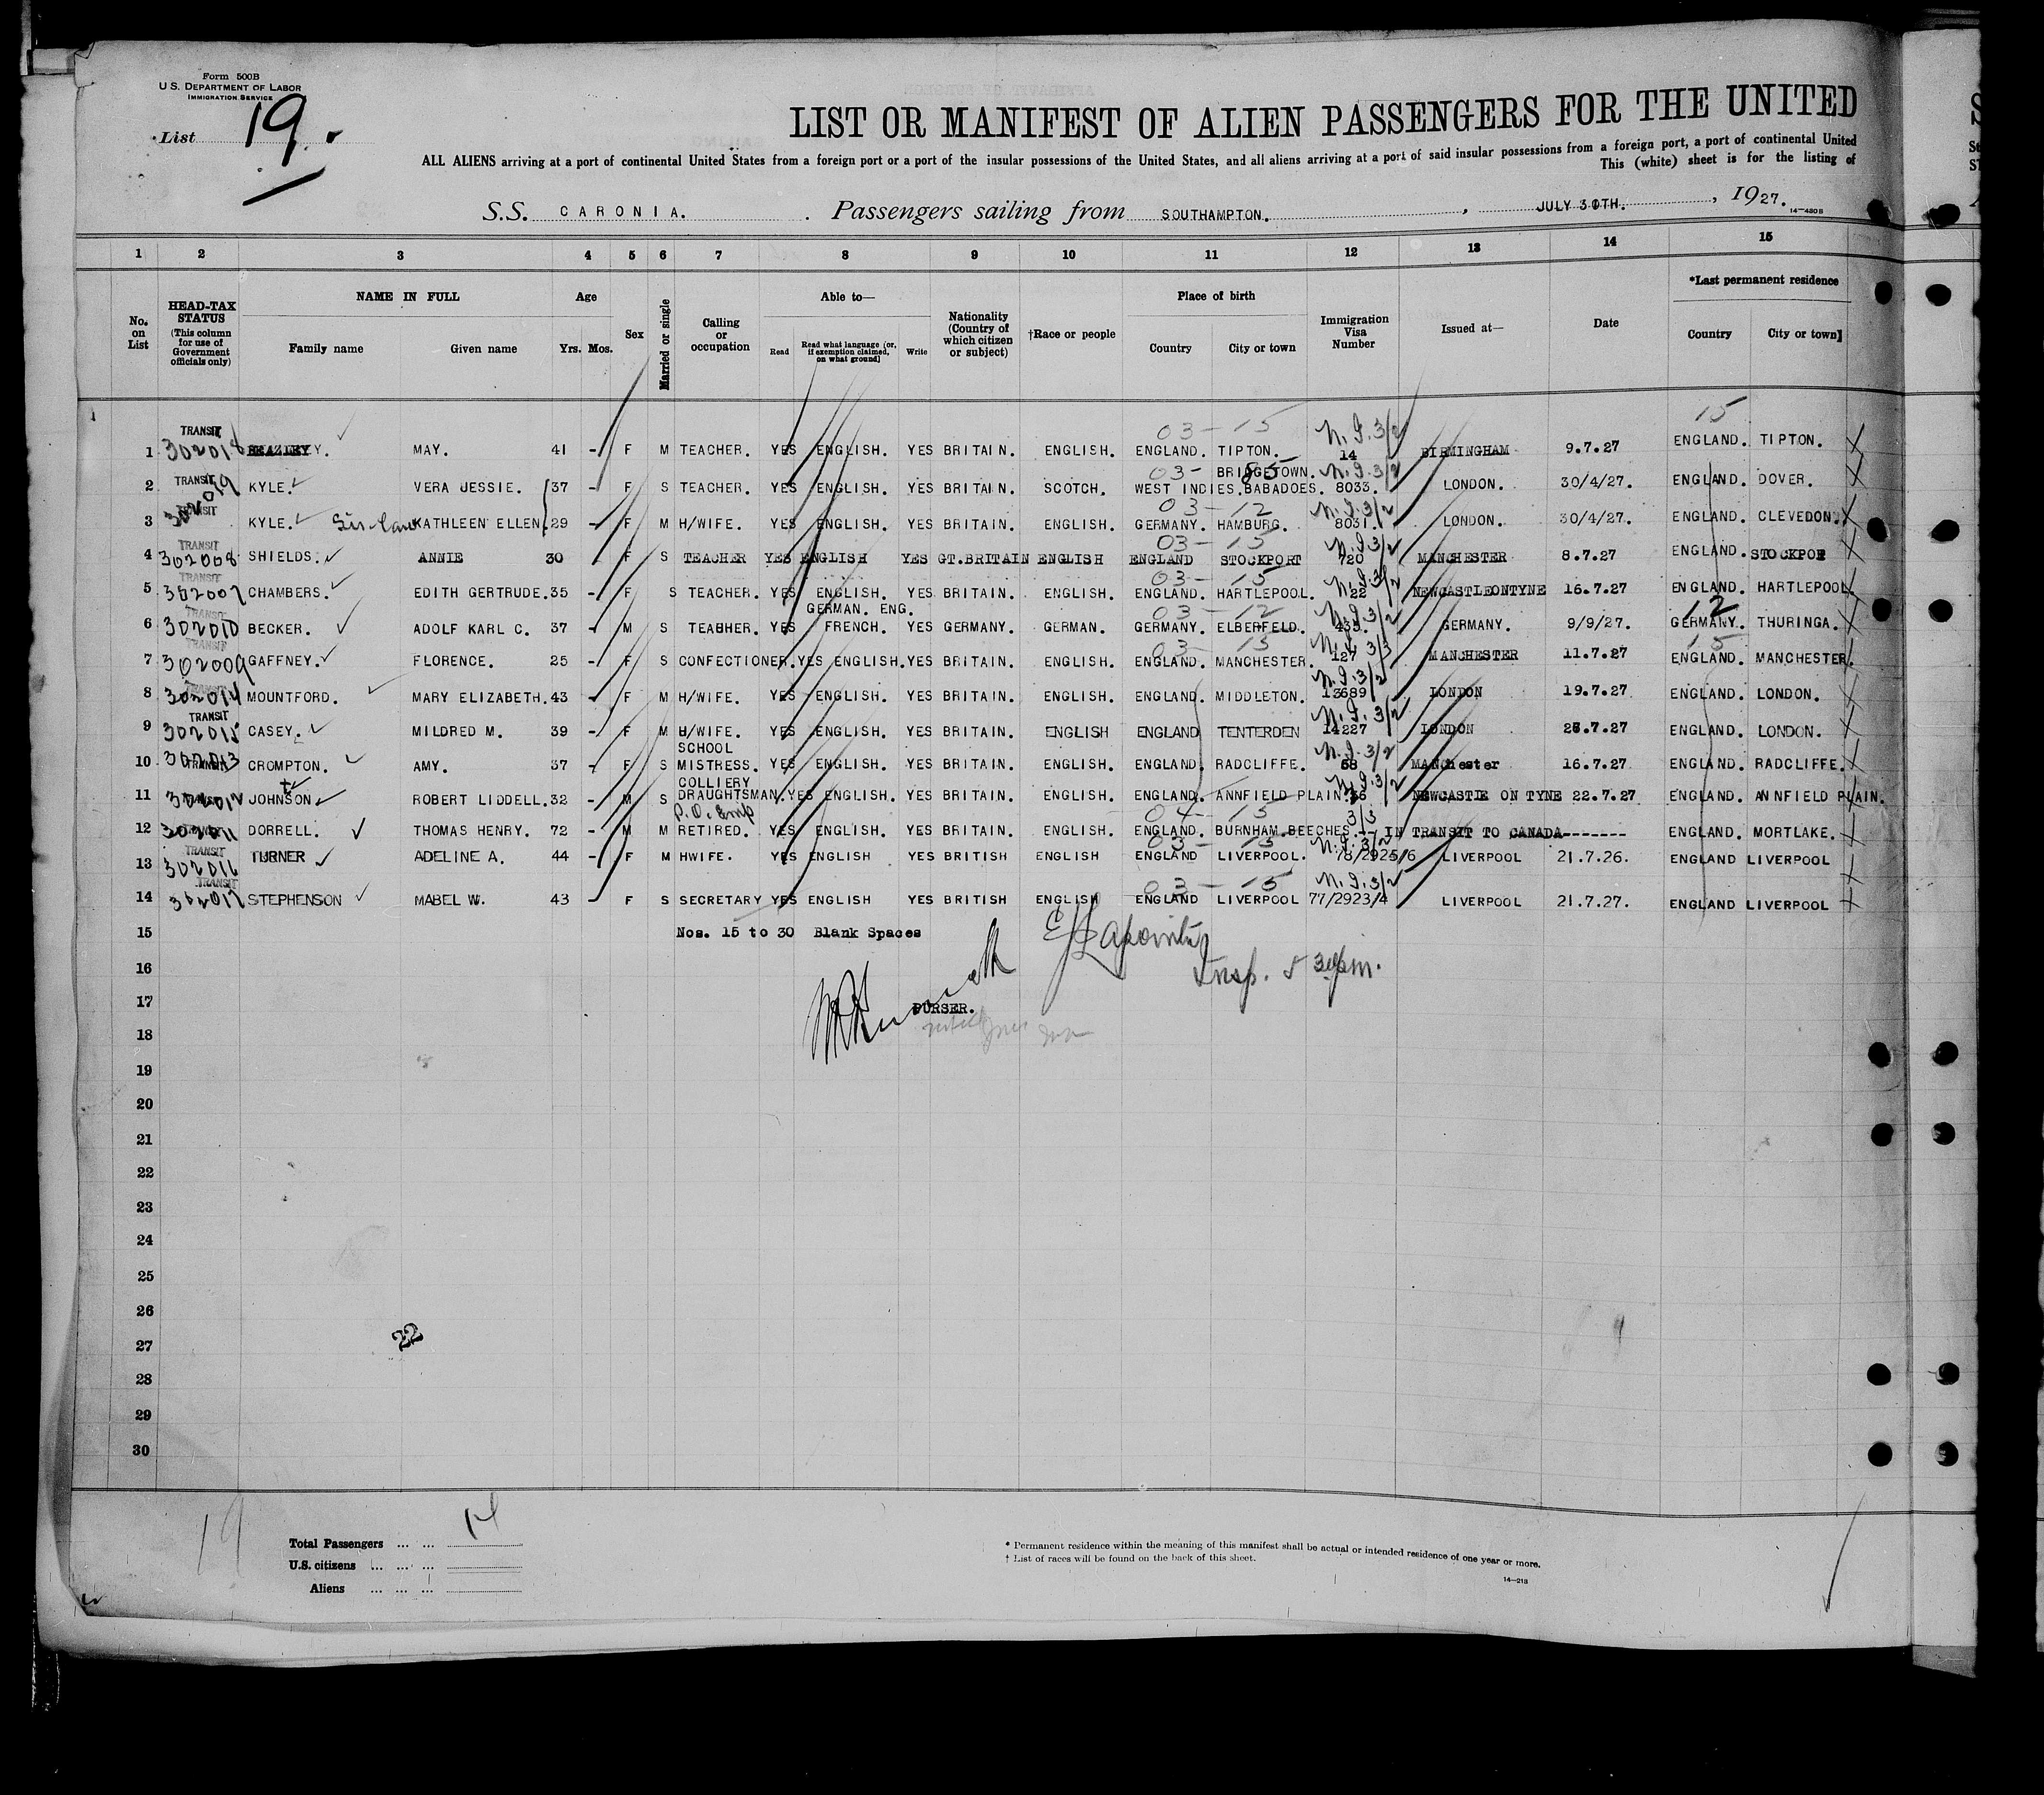 Form 500B
U.S. DEPARTMENT OF LABOR
IMMIGRATION SERVICE
List 19.
LIST OR MANIFEST OF ALIEN PASSENGERS FOR THE UNITED
ALL ALIENS arriving at a port of continental United States from a foreign port or a port of the insular possessions of the United States, and all aliens arriving at a port of said insular possessions from a foreign port, a port of continental United
This (white) sheet is for the listing of
S.S. CARONIA. Passengers sailing from SOUTHAMPTON. , JULY 30TH. , 1927.
14-480B
1 2 3 4 5 6 7 8 9 10 11 12 13 14 15
No. on List
HEAD-TAX STATUS (This column for use of Government officials only)
NAME IN FULL Family name Given name
Age Yrs. Mos.
Sex
Married or single
Calling or occupation
Able to— Read Read what language [or, if exemption claimed, on what ground] Write
Nationality (Country of which citizen or subject)
†Race or people
Place of birth Country City or town
Immigration Visa Number
Issued at—
Date
*Last permanent residence Country City or town]
03-15 N.I.3/2 15
1 TRANSIT 302018 MAY. 41 - F M TEACHER. YES ENGLISH. YES BRITAIN. ENGLISH. ENGLAND. TIPTON. 14 BIRMINGHAM 9.7.27 ENGLAND. TIPTON.
03- 85 BRIDGETOWN. N.I.3/2
2 TRANSIT 302019 KYLE. VERA JESSIE. 37 - F S TEACHER. YES ENGLISH. YES BRITAIN. SCOTCH. WEST INDIES. BABADOES. 8033. LONDON. 30/4/27. ENGLAND. DOVER.
03-12 N.I.3/2
3 TRANSIT KYLE. Sis-law KATHLEEN ELLEN. 29 - F M H/WIFE. YES ENGLISH. YES BRITAIN. ENGLISH. GERMANY. HAMBURG. 8031. LONDON. 30/4/27. ENGLAND. CLEVEDON.
03-15 N.I.3/2
4 TRANSIT 302008 SHIELDS. ANNIE 30 F S TEACHER YES ENGLISH YES GT.BRITAIN ENGLISH ENGLAND STOCKPORT 720 MANCHESTER 8.7.27 ENGLAND. STOCKPOR
03-15 N.I.3/2
5 TRANSIT 302007 CHAMBERS. EDITH GERTRUDE. 35 - F S TEACHER. YES ENGLISH. YES BRITAIN. ENGLISH. ENGLAND. HARTLEPOOL. 22 NEWCASTLEONTYNE 16.7.27 ENGLAND. HARTLEPOOL.
GERMAN. ENG. 03-12 N.I.3/2 12
6 TRANSIT 302010 BECKER. ADOLF KARL C. 37 - M S TEABHER. YES FRENCH. YES GERMANY. GERMAN. GERMANY. ELBERFELD. 433. GERMANY. 9/9/27. GERMANY. THURINGA.
03-15 N.I.3/3 15
7 TRANSIT 302009 GAFFNEY. FLORENCE. 25 - F S CONFECTIONER. YES ENGLISH. YES BRITAIN. ENGLISH. ENGLAND. MANCHESTER. 127 MANCHESTER 11.7.27 ENGLAND. MANCHESTER.
N.I.3/2
8 TRANSIT 302014 MOUNTFORD. MARY ELIZABETH. 43 - F M H/WIFE. YES ENGLISH. YES BRITAIN. ENGLISH. ENGLAND. MIDDLETON. 13689 LONDON 19.7.27 ENGLAND. LONDON.
N.I.3/2
9 TRANSIT 302015 CASEY. MILDRED M. 39 - F M H/WIFE. YES ENGLISH. YES BRITAIN. ENGLISH ENGLAND TENTERDEN 14227 LONDON 26.7.27 ENGLAND. LONDON.
SCHOOL N.I.3/2
10 TRANSIT 302013 CROMPTON. AMY. 37 - F S MISTRESS. YES ENGLISH. YES BRITAIN. ENGLISH. ENGLAND. RADCLIFFE. 68 MANchester 16.7.27 ENGLAND. RADCLIFFE.
COLLIERY N.I.3/2
11 302012 JOHNSON. ROBERT LIDDELL. 32 - M S DRAUGHTSMAN. YES ENGLISH. YES BRITAIN. ENGLISH. ENGLAND. ANNFIELD PLAIN. 36 NEWCASTLE ON TYNE 22.7.27 ENGLAND. ANNFIELD PLAIN.
P.O. Emp 04-15 3/3
12 302011 DORRELL. THOMAS HENRY. 72 - M M RETIRED. YES ENGLISH. YES BRITAIN. ENGLISH. ENGLAND. BURNHAM BEECHES.-- IN TRANSIT TO CANADA------- ENGLAND. MORTLAKE.
03-15 N.I.3/2
13 TRANSIT 302016 TURNER ADELINE A. 44 - F M HWIFE. YES ENGLISH YES BRITISH ENGLISH ENGLAND LIVERPOOL. 78/2925/6 LIVERPOOL 21.7.26. ENGLAND LIVERPOOL
03-15 N.I.3/2
14 TRANSIT 302017 STEPHENSON MABEL W. 43 - F S SECRETARY YES ENGLISH YES BRITISH ENGLISH ENGLAND LIVERPOOL 77/2923/4 LIVERPOOL 21.7.27. ENGLAND LIVERPOOL
15 Nos. 15 to 30 Blank Spaces
16 Insp. 5 30pm.
17 PURSER.
18
19
20
21
22
23
24
25
26
27 22
28
29
30
19
Total Passengers ... ... 14
U.S. citizens ... ... ...
Aliens ... ... ...
* Permanent residence within the meaning of this manifest shall be actual or intended residence of one year or more.
† List of races will be found on the back of this sheet.
14-21B